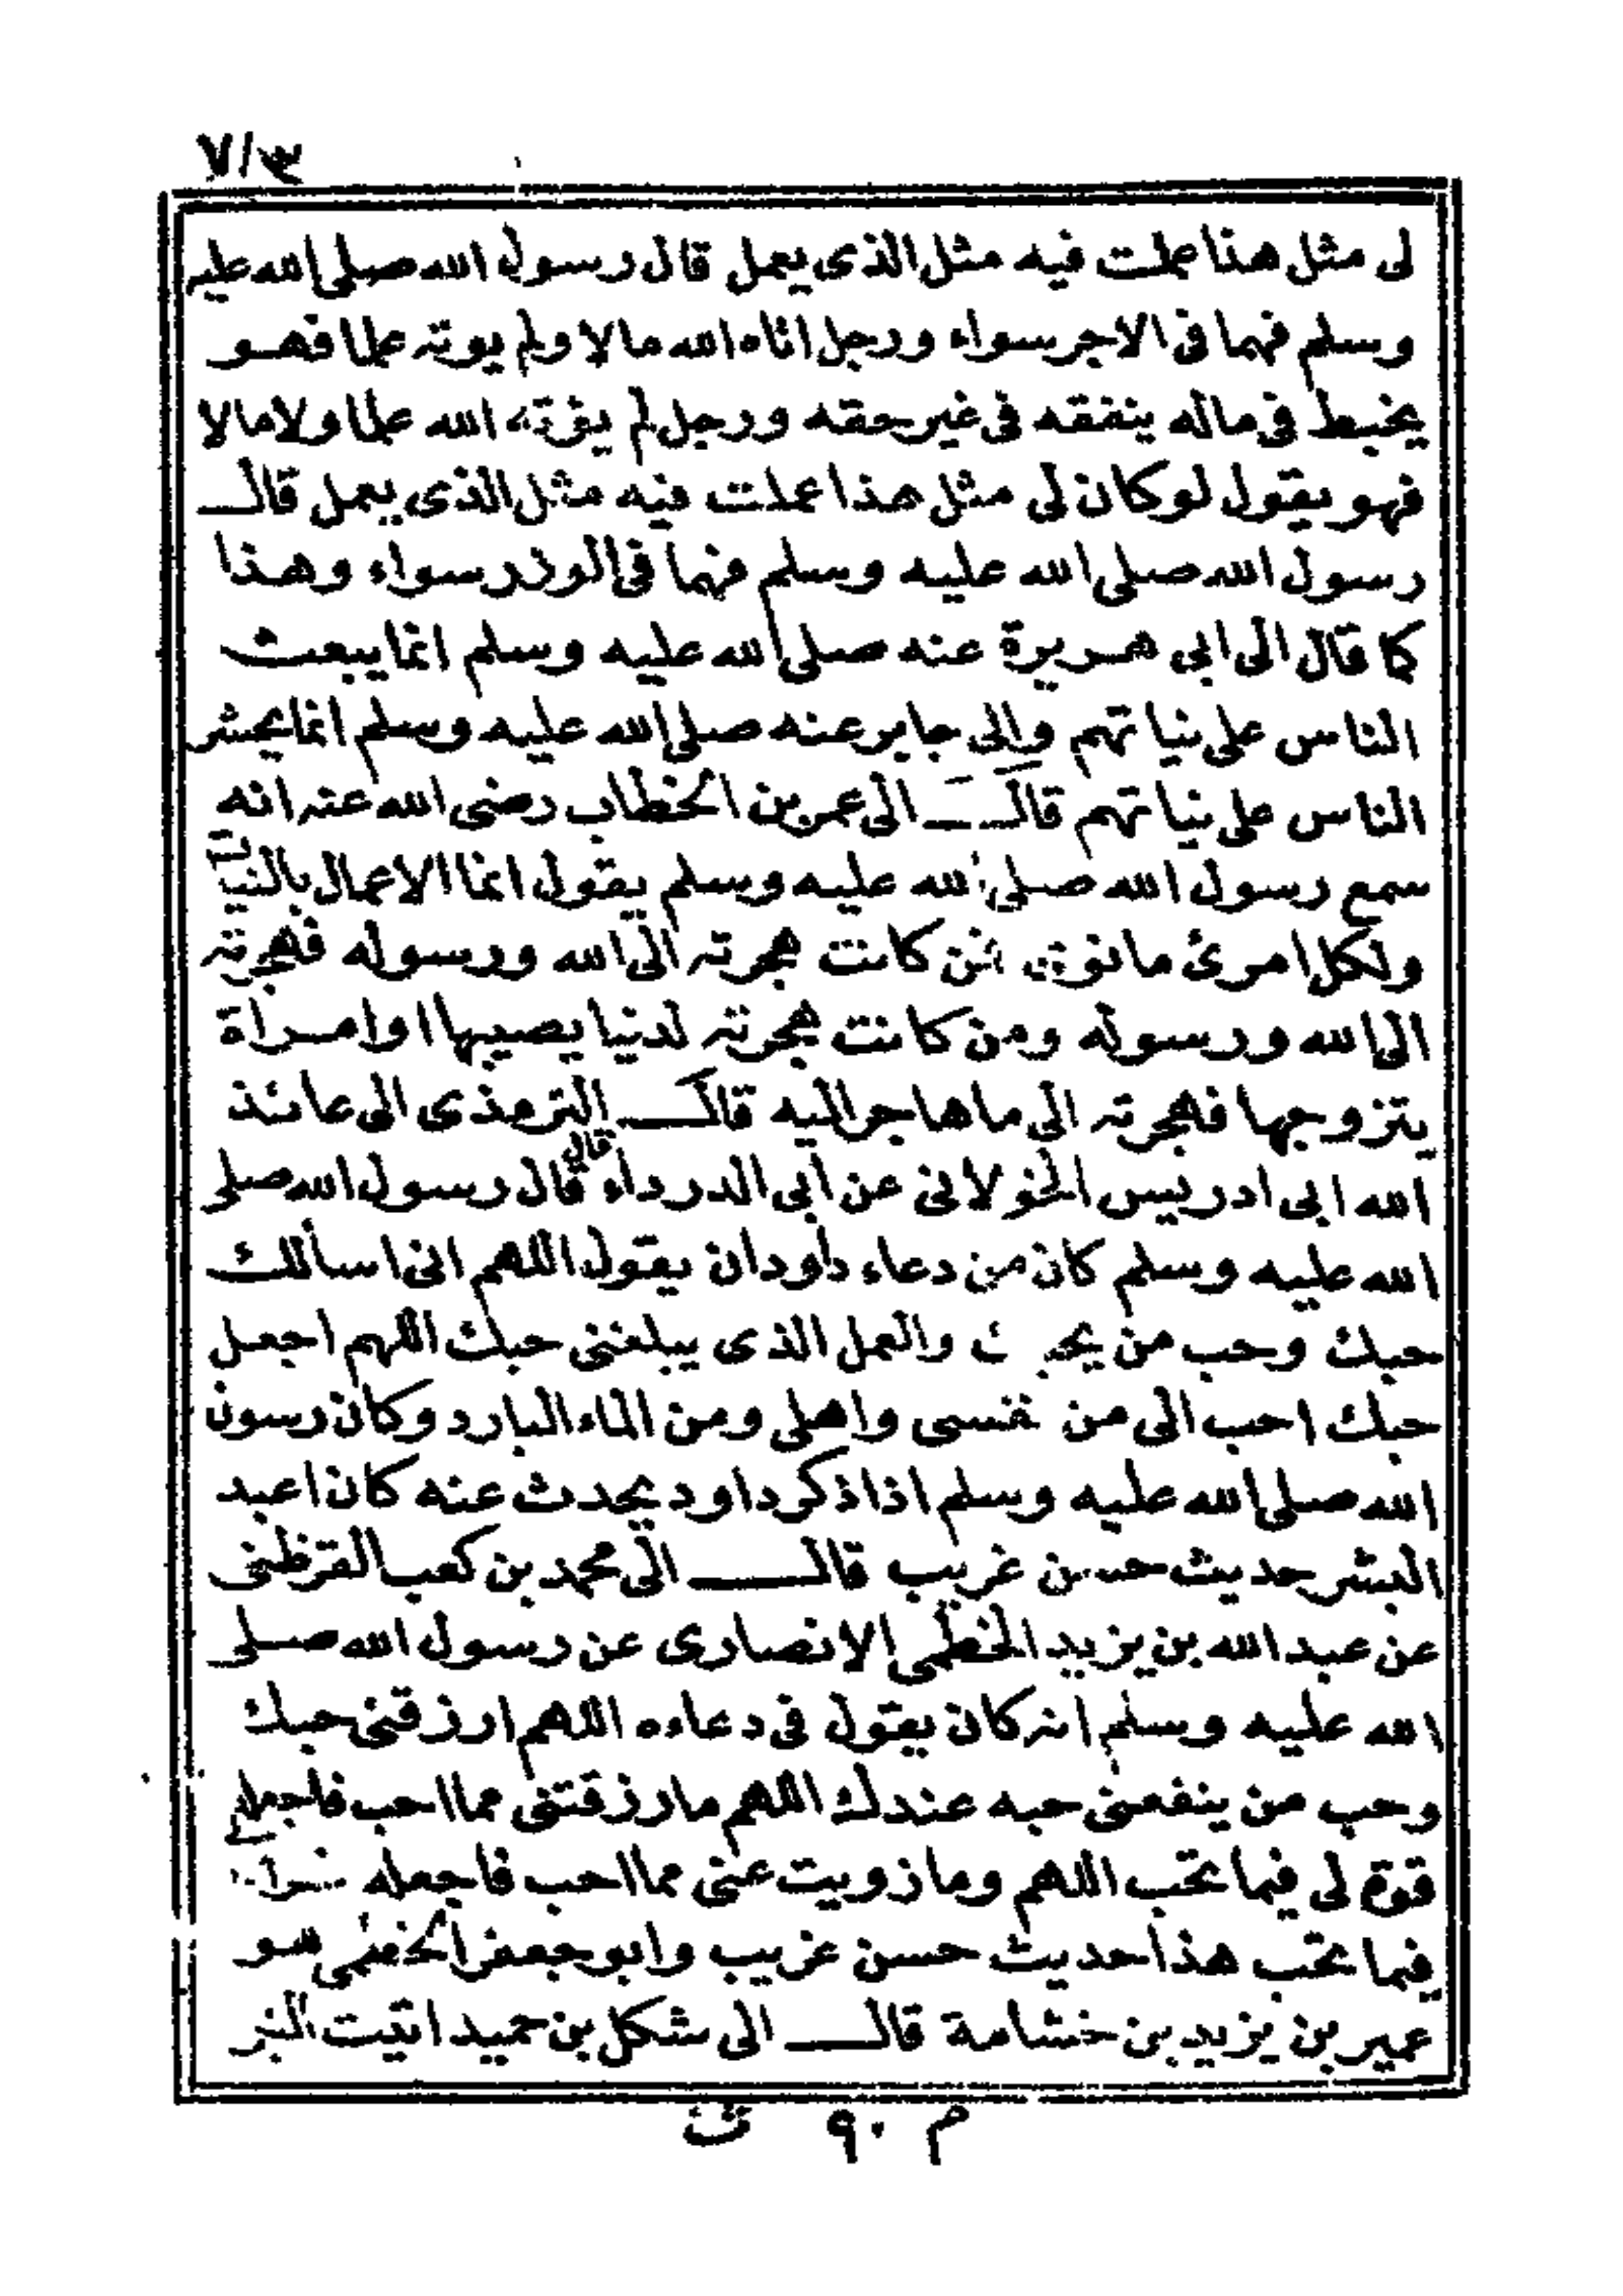 ٧/٣
لى مثل هذا عملت فيه مثل الذى يعمل قال رسول الله صلى الله عليه
وسلم فهما فى الاجر سواء ورجل اتاه الله مالا ولم يوته علما فهو
يخبط فى ماله ينفقه فى غير حقه ورجل لم يؤته الله علما ولا مالا
فهو يقول لو كان لى مثل هذا عملت فيه مثل الذى يعمل قال
رسول الله صلى الله عليه وسلم فهما فى الوزر سواء وهذا
كما قال الى ابى هريرة عنه صلى الله عليه وسلم انما يبعث
الناس على نياتهم والى جابر عنه صلى الله عليه وسلم انما يحشر
الناس على نياتهم قال الى عمر بن الخطاب رضى الله عنه انه
سمع رسول الله صلى الله عليه وسلم يقول انما الاعمال بالنية
ولكل امرئ ما نوى فمن كانت هجرته الى الله ورسوله فهجرته
الى الله ورسوله ومن كانت هجرته لدنيا يصيبها او امراة
يتزوجها فهجرته الى ما هاجر اليه قال الترمذى الى عائذ
الله ابى ادريس الخولانى عن ابى الدرداء قال قال رسول الله صلى
الله عليه وسلم كان من دعاء داود ان يقول اللهم انى اسألك
حبك وحب من يحبك والعمل الذى يبلغنى حبك اللهم اجعل
حبك احب الى من نفسى واهلى ومن الماء البارد وكان رسول
الله صلى الله عليه وسلم اذا ذكر داود يحدث عنه كان اعبد
البشر حديث حسن غريب قال الى محمد بن كعب القرظى
عن عبد الله بن يزيد الخطمى الانصارى عن رسول الله صلى
الله عليه وسلم انه كان يقول فى دعاءه اللهم ارزقنى حبك
وحب من ينفعنى حبه عندك اللهم ما رزقتنى مما احب فاجعله
قوة لى فيما تحب اللهم وما زويت عنى مما احب فاجعله
فيما تحب هذا حديث حسن غريب وابو جعفر الخطمى هو
عمير بن يزيد بن خشامة قال الى شكل بن حميد اتيت النبى
م ٩٠ ث